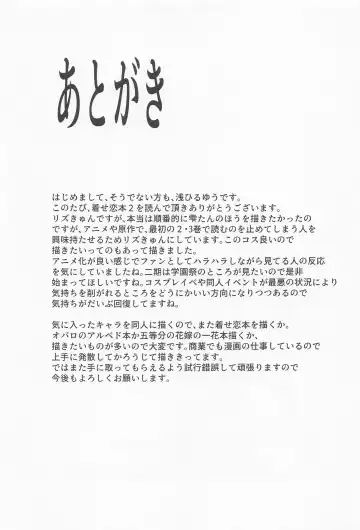 あとがき
はじめまして、そうでない方も、浅ひるゆうです。
このたび、着せ恋本２を読んで頂きありがとうございます。
リズきゅんですが、本当は順番的に雫たんのほうを描きたかったの
ですが、アニメや原作で、最初の２・３巻で読むのを止めてしまう人を
興味持たせるためリズきゅんにしています。このコス良いので
描きたいってのもあって描きました。
アニメ化が良い感じでファンとしてハラハラしながら見てる人の反応
を気にしていましたね。二期は学園祭のところが見たいので是非
始まってほしいですね。コスプレイベや同人イベントが最悪の状況により
気持ちを削がれるところをどうにかいい方向になりつつあるので
気持ちがだいぶ回復してますね。
気に入ったキャラを同人に描くので、また着せ恋本を描くか。
オバロのアルベド本か五等分の花嫁の一花本描くか、
描きたいものが多いので大変です。商業でも漫画の仕事しているので
上手に発散してかろうじて描ききってます。
ではまた手に取ってもらえるよう試行錯誤して頑張りますので
今後もよろしくお願いします。